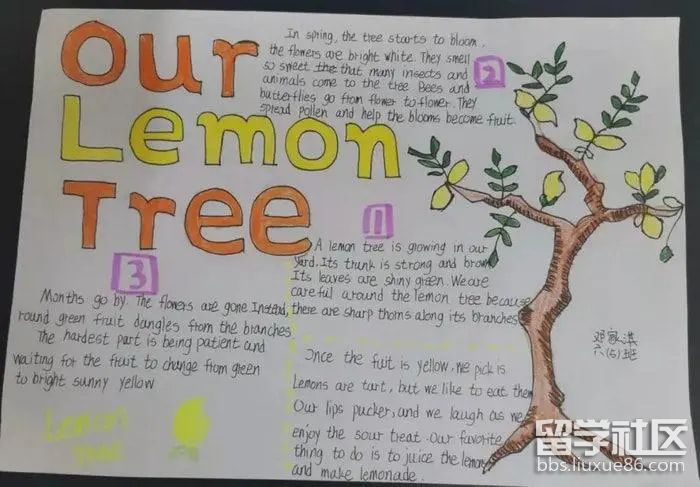 Our
Lemon
Tree
In spring, the tree starts to bloom,
the flowers are bright white. They smell
so sweet that many insects and
animals come to the tree. Bees and
butterflies go from flower to flower. They
spread pollen and help the blooms become fruit.
2
1
A lemon tree is growing in our
yard. Its trunk is strong and brown
Its leaves are shiny green. We are
careful around the lemon tree because
there are sharp thorns along its branches
3
Months go by. The flowers are gone. Instead,
round green fruit dangles from the branches
The hardest part is being patient and
waiting for the fruit to change from green
to bright sunny yellow
Once the fuit is yellow, we pick is
Lemons are tart, but we like to eat them
Our lips pucker, and we laugh as we
enjoy the sour treat. Our favorite
thing to do is to juice the lemons
and make lemonade.
Lemon
tree
邓家淇
六(5)班
留学社区
bbs.liuxue86.com